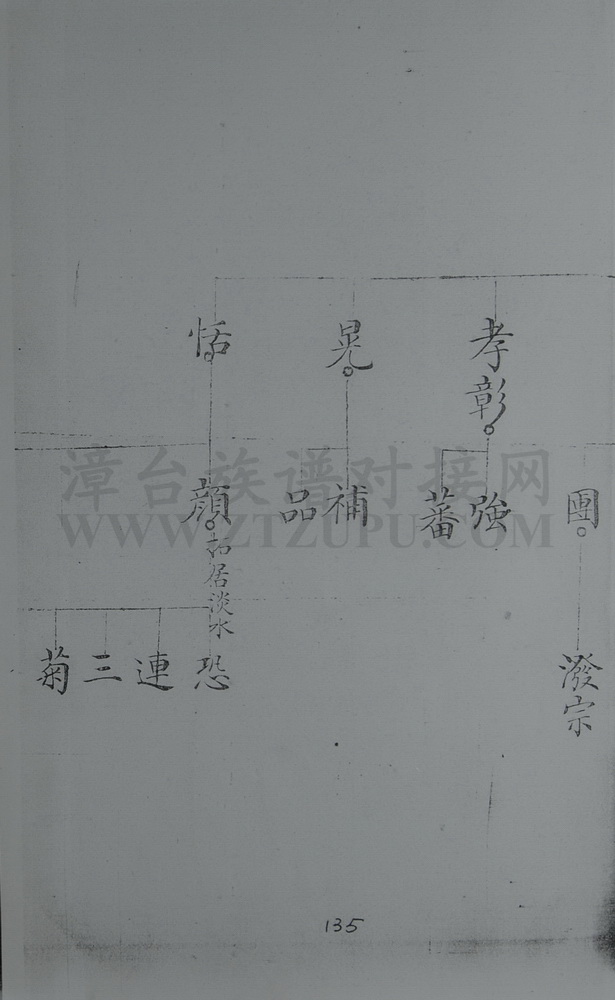 孝彰
晃
恬
團
強
蕃
補
品
顔
居淡水
潑宗
恐
連
三
菊
135
漳台族谱对接网
WWW.ZTZUPU.COM